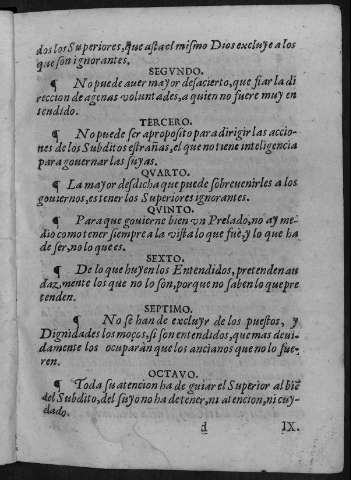 dos los Superiores, que asta el mismo Dios excluye a los
que son ignorantes.
SEGVNDO.
¶ No puede auer mayor desacierto, que fiar la di
reccion de agenas voluntades, a quien no fuere muy en
tendido.
TERCERO.
¶ No puede ser aproposito para dirigir las accio-
nes de los Subditos estrañas, el que no tiene inteligencia
para governar las suyas.
QVARTO.
¶ La mayor desdicha que puede sobrevenirles a los
gouiernos, es tener los Superiores ignorantes.
QVINTO.
¶ Para que gouierne bien vn Prelado, no ay me-
dio como tener siempre a la vista lo que fuè, y lo que ha
de ser, no lo que es.
SEXTO.
¶ De lo que huyen los Entendidos, pretenden au
daz, mente los que no lo son, porque no saben lo que pre
tenden.
SEPTIMO.
¶ No se han de excluyr de los puestos, y
Dignidades los moços, si son entendidos, que mas deui-
damente los ocuparàn que los ancianos que no lo fue-
ren.
OCTAVO.
¶ Toda su atencion ha de guiar el Superior al biẽ
del Subdito, del suyo no ha de tener, ni atencion, ni cuy-
dado.
d IX.